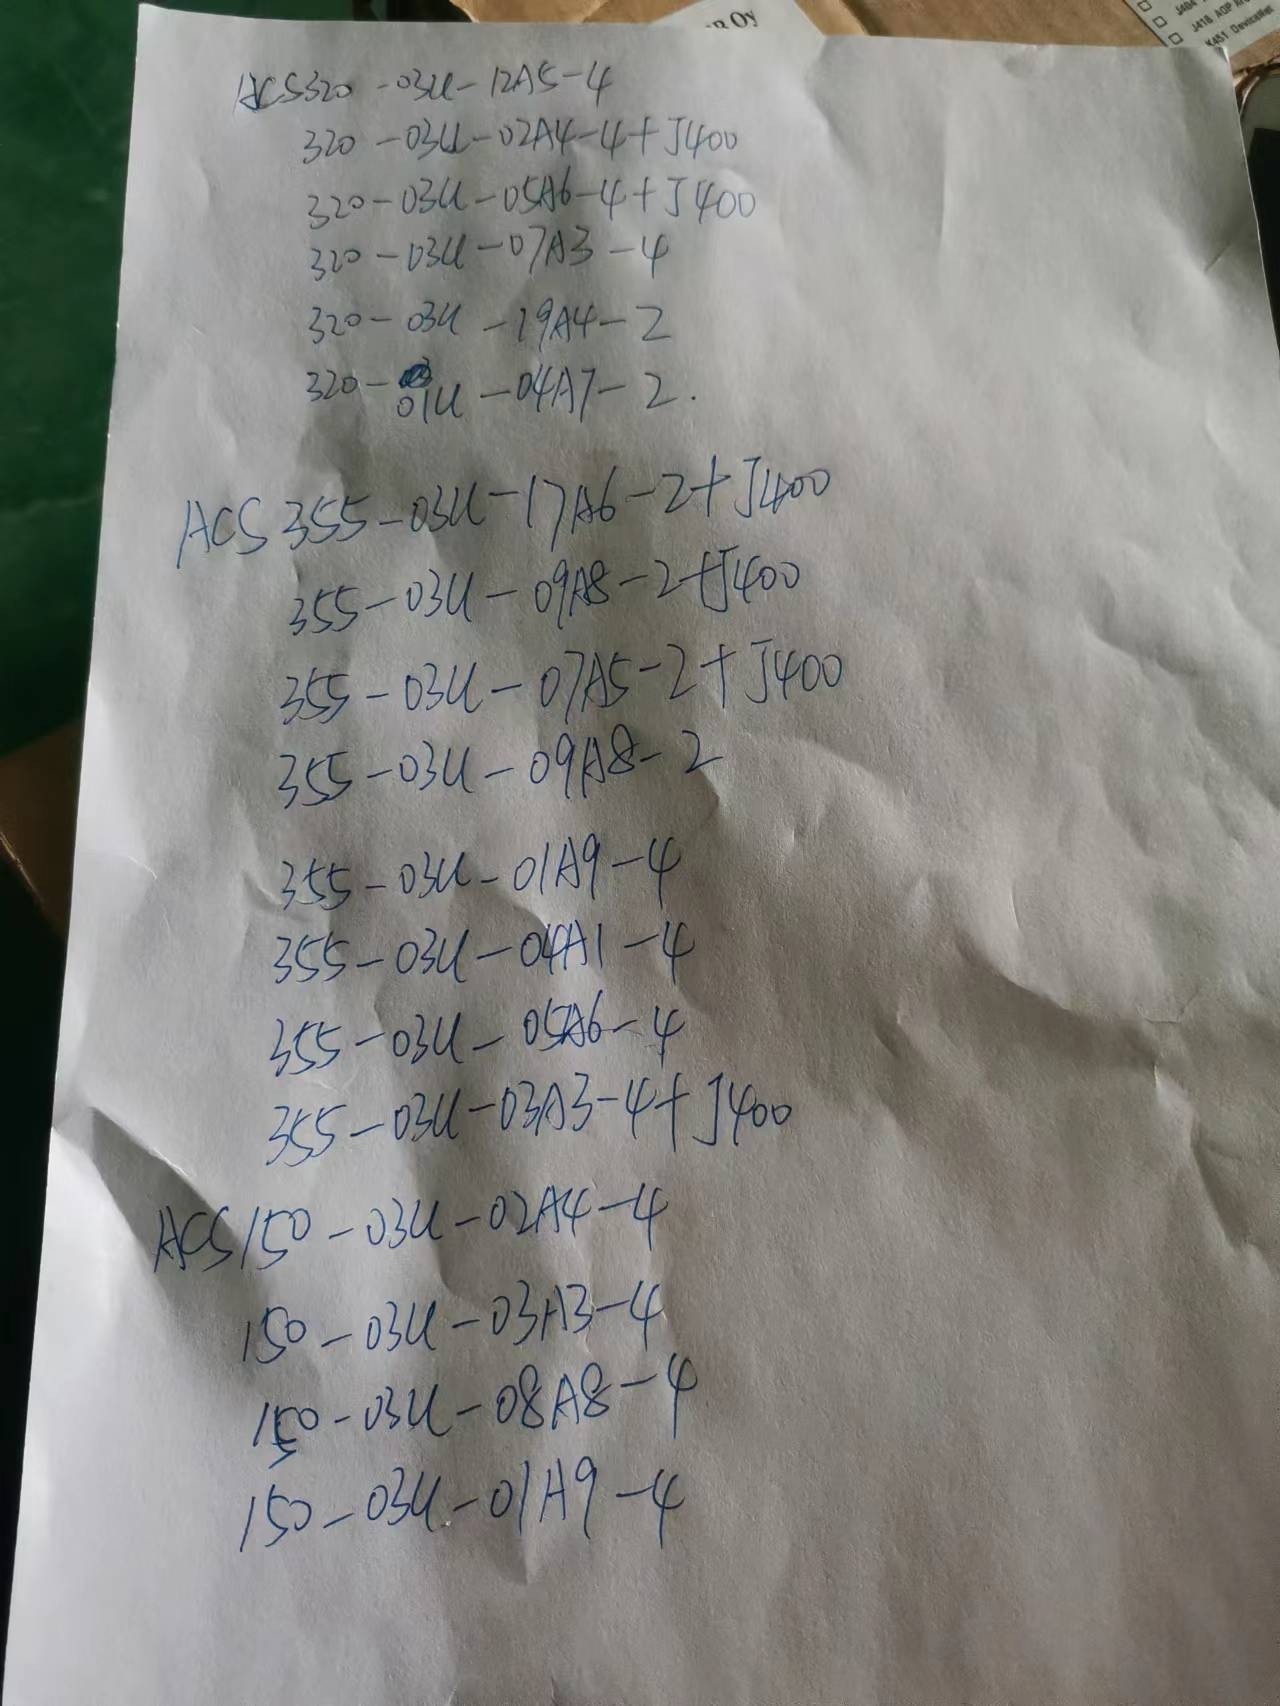 B Oy
J404
J418 AOP
K451 DeviceNet
ACS320-03U-12A5-4
320-03U-02A4-4+J400
320-03U-05A6-4+J400
320-03U-07A3-4
320-03U-19A4-2
320-01U-04A7-2.
ACS355-03U-17A6-2+J400
355-03U-09A8-2+J400
355-03U-07A5-2+J400
355-03U-09A8-2
355-03U-01A9-4
355-03U-04A1-4
355-03U-05A6-4
355-03U-03A3-4+J400
ACS150-03U-02A4-4
150-03U-03A3-4
150-03U-08A8-4
150-03U-01A9-4